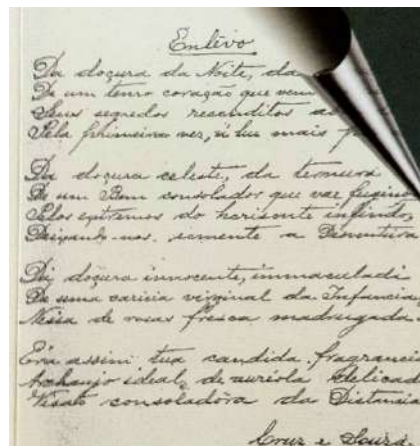 Enlêvo
Da doçura da Noite, da
De um tenro coração que vem
Seus segredos reconditos a
Pela primeira vez, á luz mais p
Da doçura celeste, da ternura
De um Bem consolador que vae fugindo
Pelos extremos do horisonte infindo,
Deixando-nos, sómente a Desventura
Da doçura innocente, immaculada
De uma caricia virginal da Infancia
Nessa de rosas fresca madrugada.
Era assim tua candida fragrancia
Archanjo ideal de auréola delicada
Visão consoladôra da Distancia
Cruz e Souza.